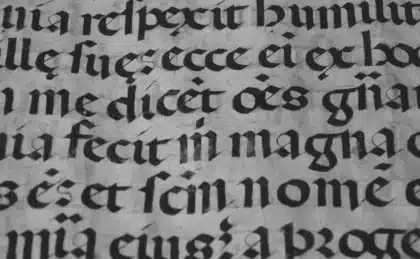 uia respexit humilit
illę suę: ecce ei ex hoc
me dicēt oēs gn̄a
uia fecit m̄ magna
ēs: et scm̄ nomē e
mīa eius: a proge